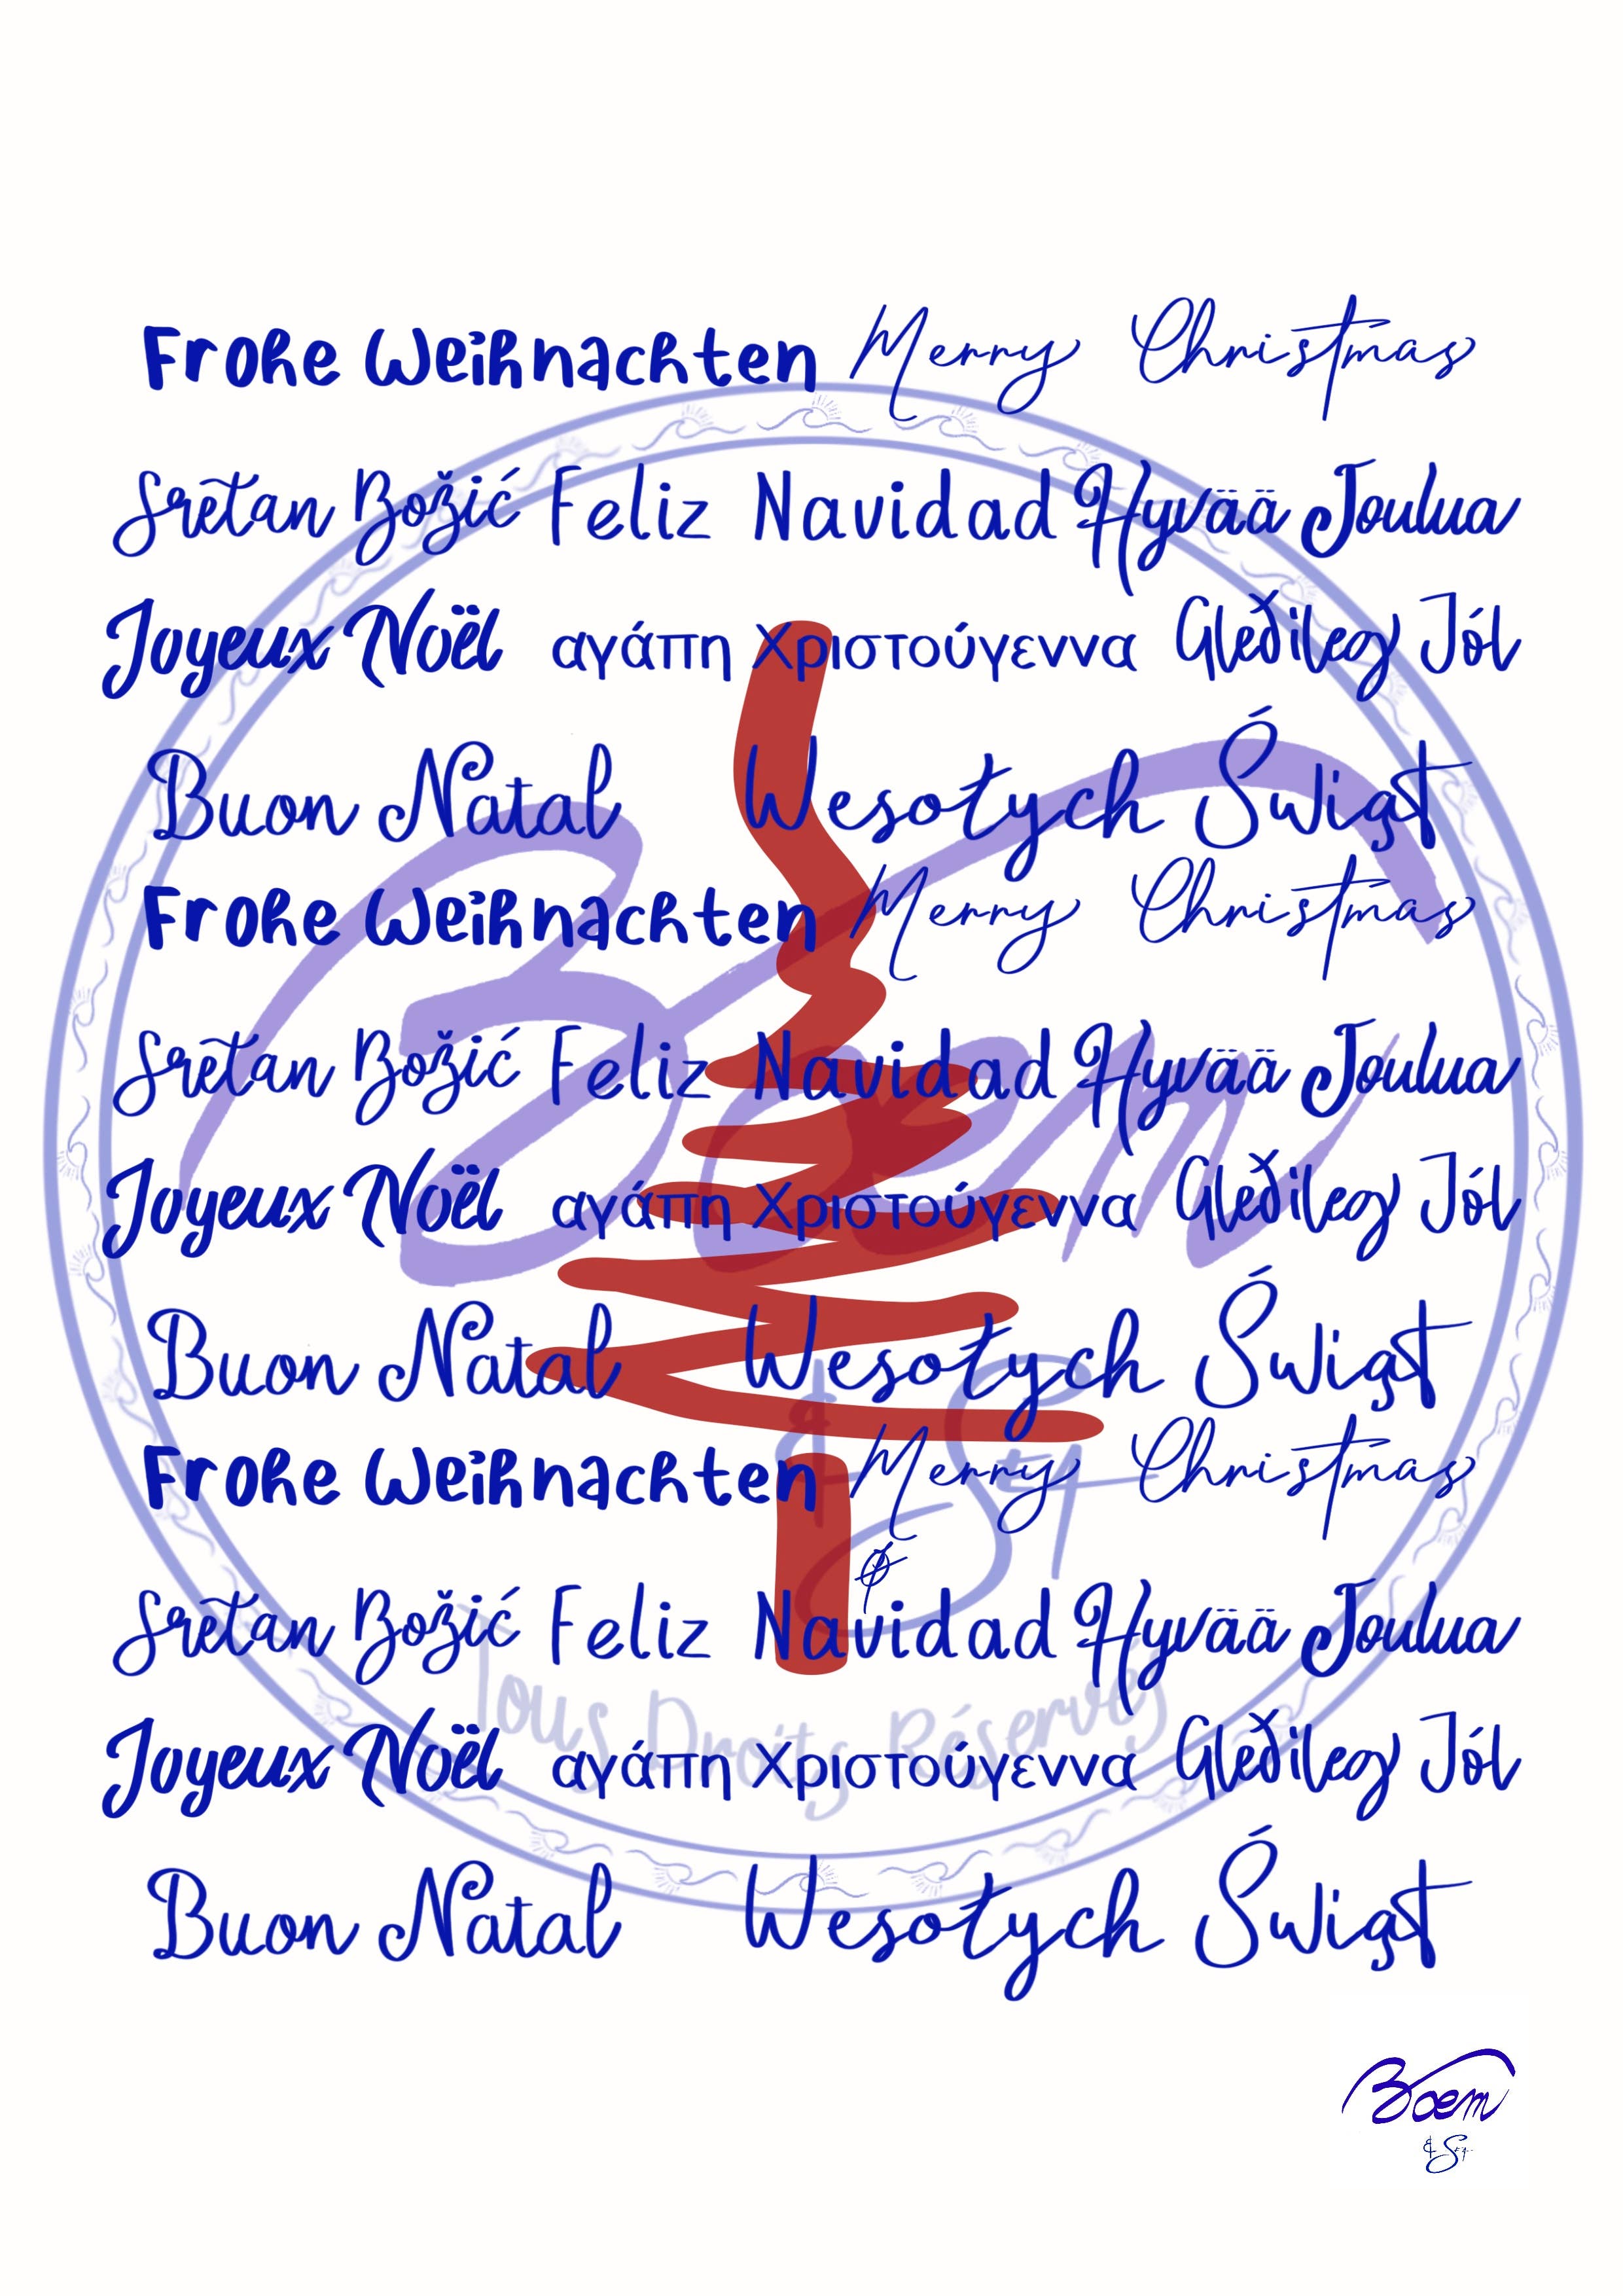 Frohe Weihnachten Merry Christmas
Sretan Božić Feliz Navidad Hyvää Joulua
Joyeux Noël αγάπη Χριστούγεννα Gleðileg Jól
Buon Natal Wesołych Świąt
Frohe Weihnachten Merry Christmas
Sretan Božić Feliz Navidad Hyvää Joulua
Joyeux Noël αγάπη Χριστούγεννα Gleðileg Jól
Buon Natal Wesołych Świąt
Frohe Weihnachten Merry Christmas
Sretan Božić Feliz Navidad Hyvää Joulua
Joyeux Noël αγάπη Χριστούγεννα Gleðileg Jól
Buon Natal Wesołych Świąt
Boem
Tous Droits Réservés
Boem